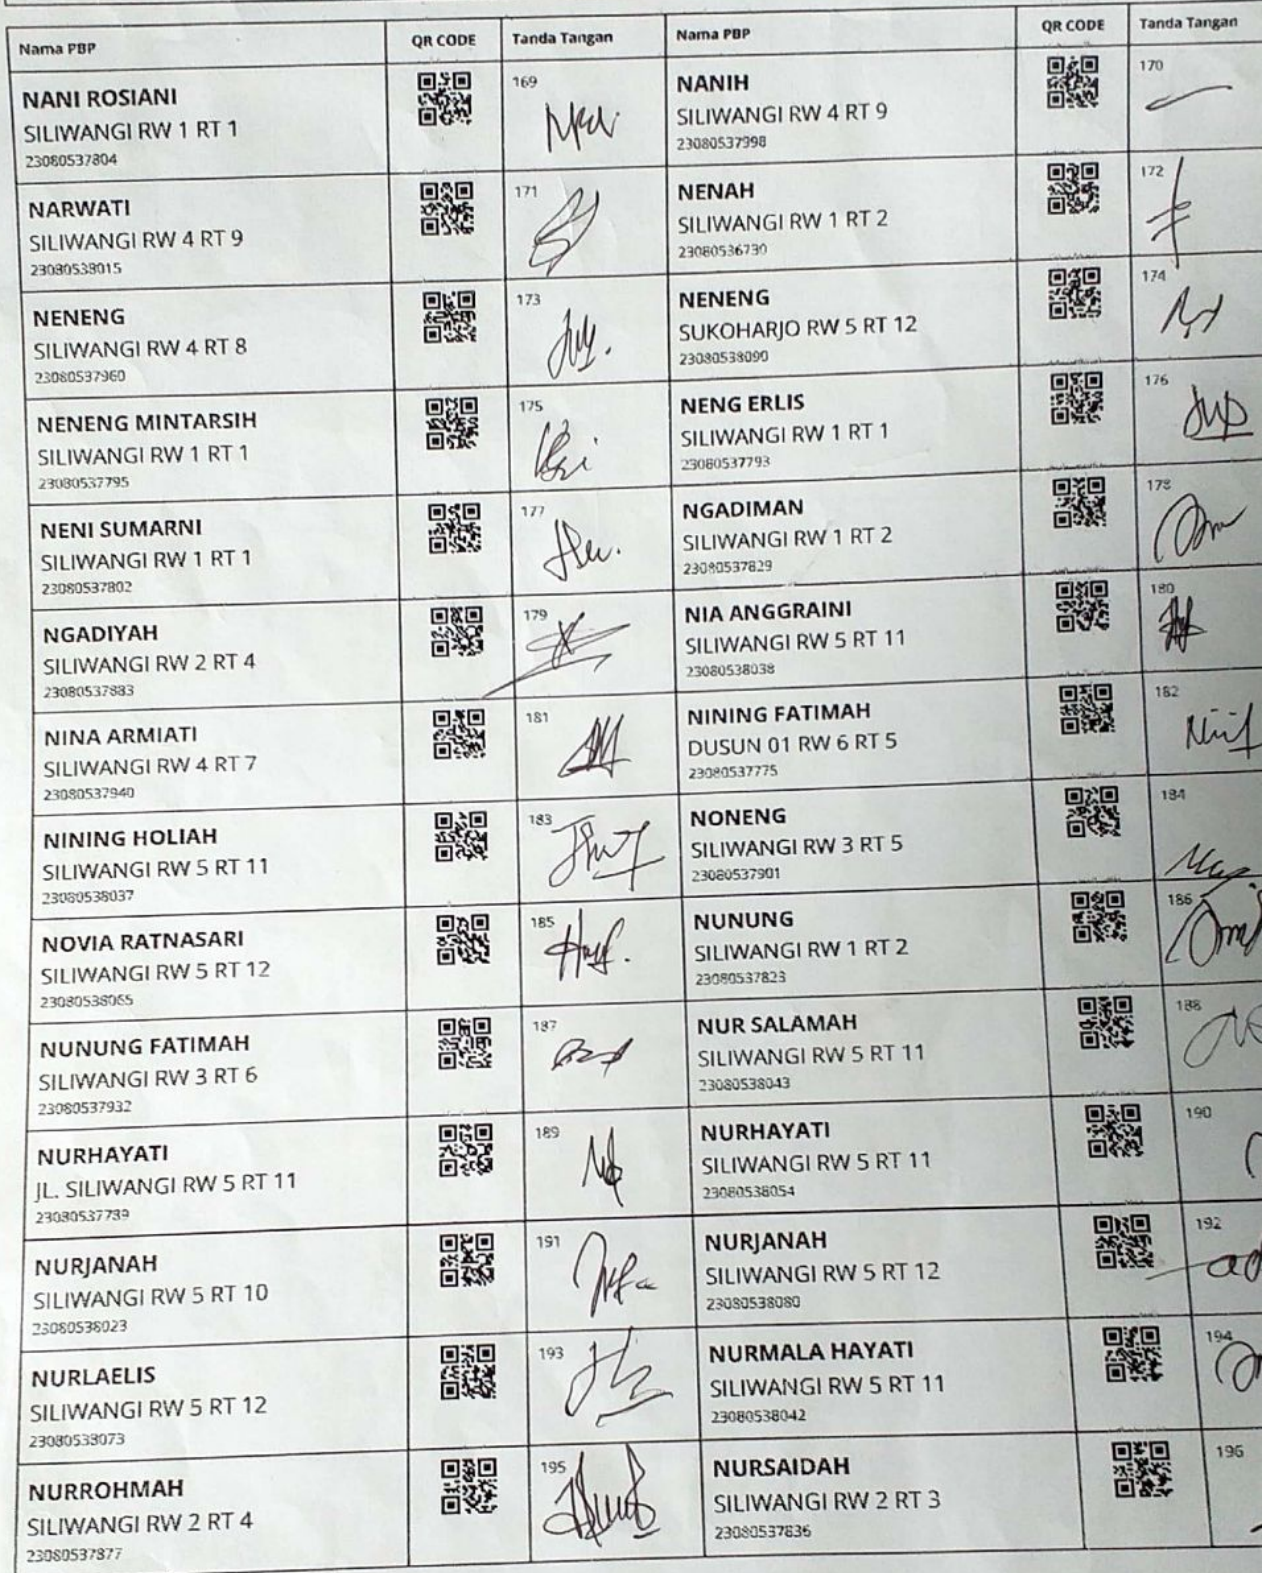 Nama PBP QR CODE Tanda Tangan Nama PBP QR CODE Tanda Tangan
NANI ROSIANI
SILIWANGI RW 1 RT 1
23080537804
169
NANIH
SILIWANGI RW 4 RT 9
23080537998
170
NARWATI
SILIWANGI RW 4 RT 9
23080538015
171
NENAH
SILIWANGI RW 1 RT 2
23080536730
172
NENENG
SILIWANGI RW 4 RT 8
23080537960
173
NENENG
SUKOHARJO RW 5 RT 12
23080538090
174
NENENG MINTARSIH
SILIWANGI RW 1 RT 1
23080537795
175
NENG ERLIS
SILIWANGI RW 1 RT 1
23080537793
176
NENI SUMARNI
SILIWANGI RW 1 RT 1
23080537802
177
NGADIMAN
SILIWANGI RW 1 RT 2
23080537829
178
NGADIYAH
SILIWANGI RW 2 RT 4
23080537883
179
NIA ANGGRAINI
SILIWANGI RW 5 RT 11
23080538038
180
NINA ARMIATI
SILIWANGI RW 4 RT 7
23080537940
181
NINING FATIMAH
DUSUN 01 RW 6 RT 5
23080537775
182
NINING HOLIAH
SILIWANGI RW 5 RT 11
23080538037
183
NONENG
SILIWANGI RW 3 RT 5
23080537901
184
NOVIA RATNASARI
SILIWANGI RW 5 RT 12
23080538065
185
NUNUNG
SILIWANGI RW 1 RT 2
23080537823
186
NUNUNG FATIMAH
SILIWANGI RW 3 RT 6
23080537932
187
NUR SALAMAH
SILIWANGI RW 5 RT 11
23080538043
188
NURHAYATI
JL. SILIWANGI RW 5 RT 11
23080537789
189
NURHAYATI
SILIWANGI RW 5 RT 11
23080538054
190
NURJANAH
SILIWANGI RW 5 RT 10
23080538023
191
NURJANAH
SILIWANGI RW 5 RT 12
23080538080
192
NURLAELIS
SILIWANGI RW 5 RT 12
23080538073
193
NURMALA HAYATI
SILIWANGI RW 5 RT 11
23080538042
194
NURROHMAH
SILIWANGI RW 2 RT 4
23080537877
195
NURSAIDAH
SILIWANGI RW 2 RT 3
23080537836
196